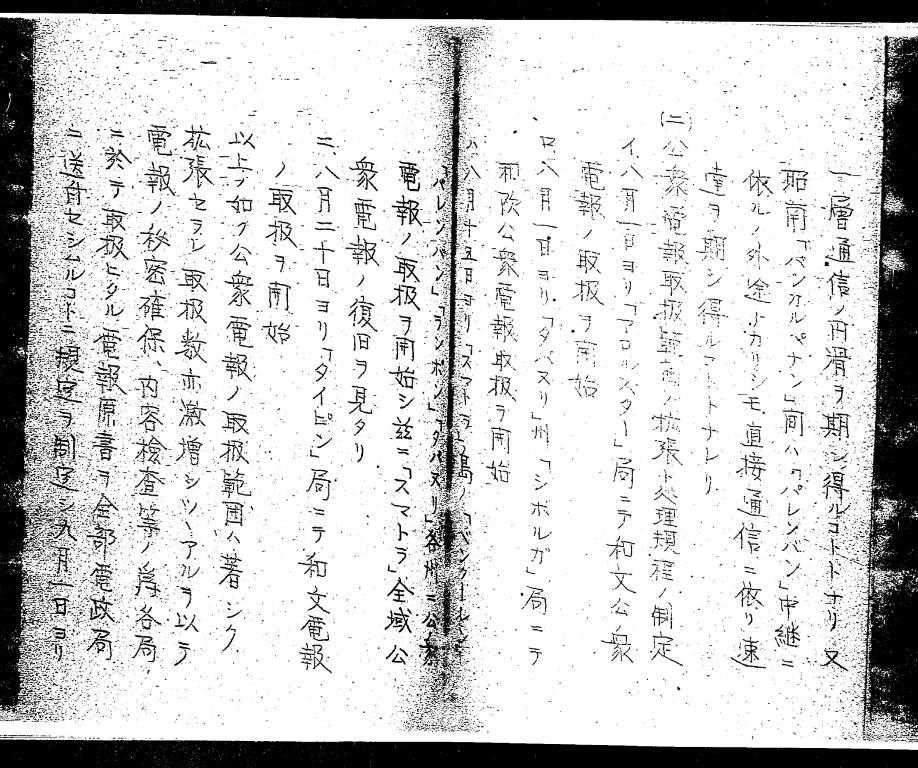 一層通信ノ円滑ヲ期シ得ルコトトナリ又
昭南「パンカルピナン」間ハ「パレンバン」中継ニ
依ルノ外途ナカリシモ直接通信ニ依リ速
達ヲ期シ得ルコトトナレリ
(二)公衆電報取扱範囲ノ拡張ト処理規程ノ制定
イ、八月一日ヨリ「アロルスター」局ニテ和文公衆
電報ノ取扱ヲ開始
ロ、八月一日ヨリ「タパヌリ」州「シボルガ」局ニテ
和欧公衆電報取扱ヲ開始
ハ、八月十五日ヨリ「スマトラ」島ノ「ベンクーレン」
「パレンバン」「ランポン」「タパヌリ」各州ニ公衆
電報ノ取扱ヲ開始シ茲ニ「スマトラ」全域公
衆電報ノ復旧ヲ見タリ
ニ、八月二十日ヨリ「タイピン」局ニテ和文電報
ノ取扱ヲ開始
以上ノ如ク公衆電報ノ取扱範囲ハ著シク
拡張セラレ取扱数亦激増シツヽアルヲ以テ
電報ノ秘密確保、内容検査等ノ為各局
ニ於テ取扱ヒタル電報原書ヲ全部電政局
ニ送付セシムルコトニ規定ヲ制定シ九月一日ヨリ